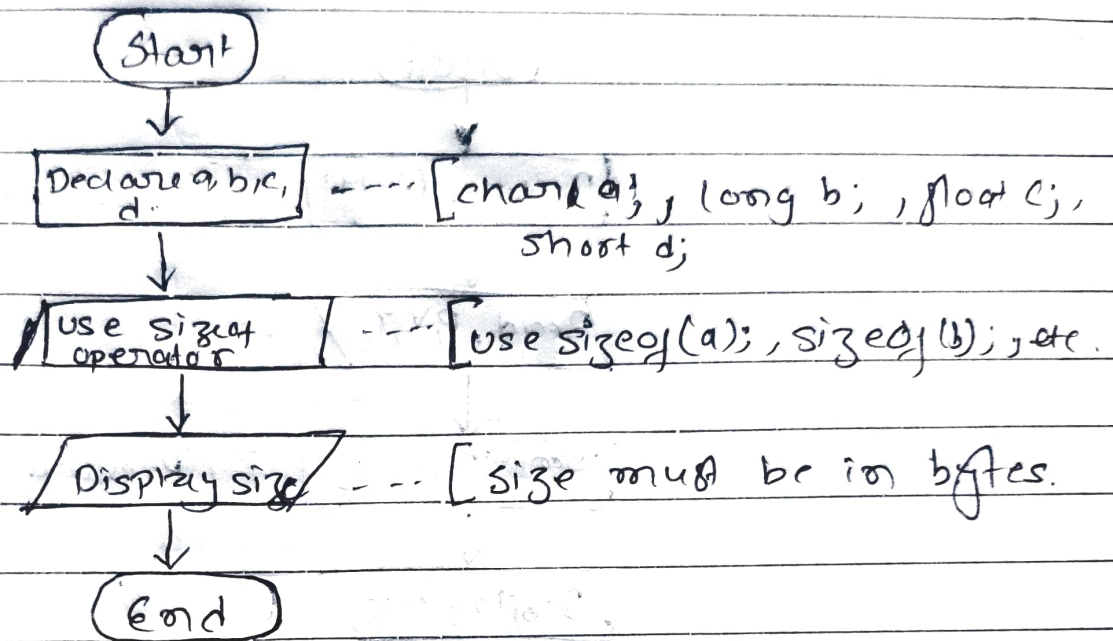 Start
Declare a, b, c, [char a; , long b; , float c; ,
d. short d;
use sizeof [use sizeof(a); , sizeof(b); , etc.
operator
Display size [size must be in bytes.
End